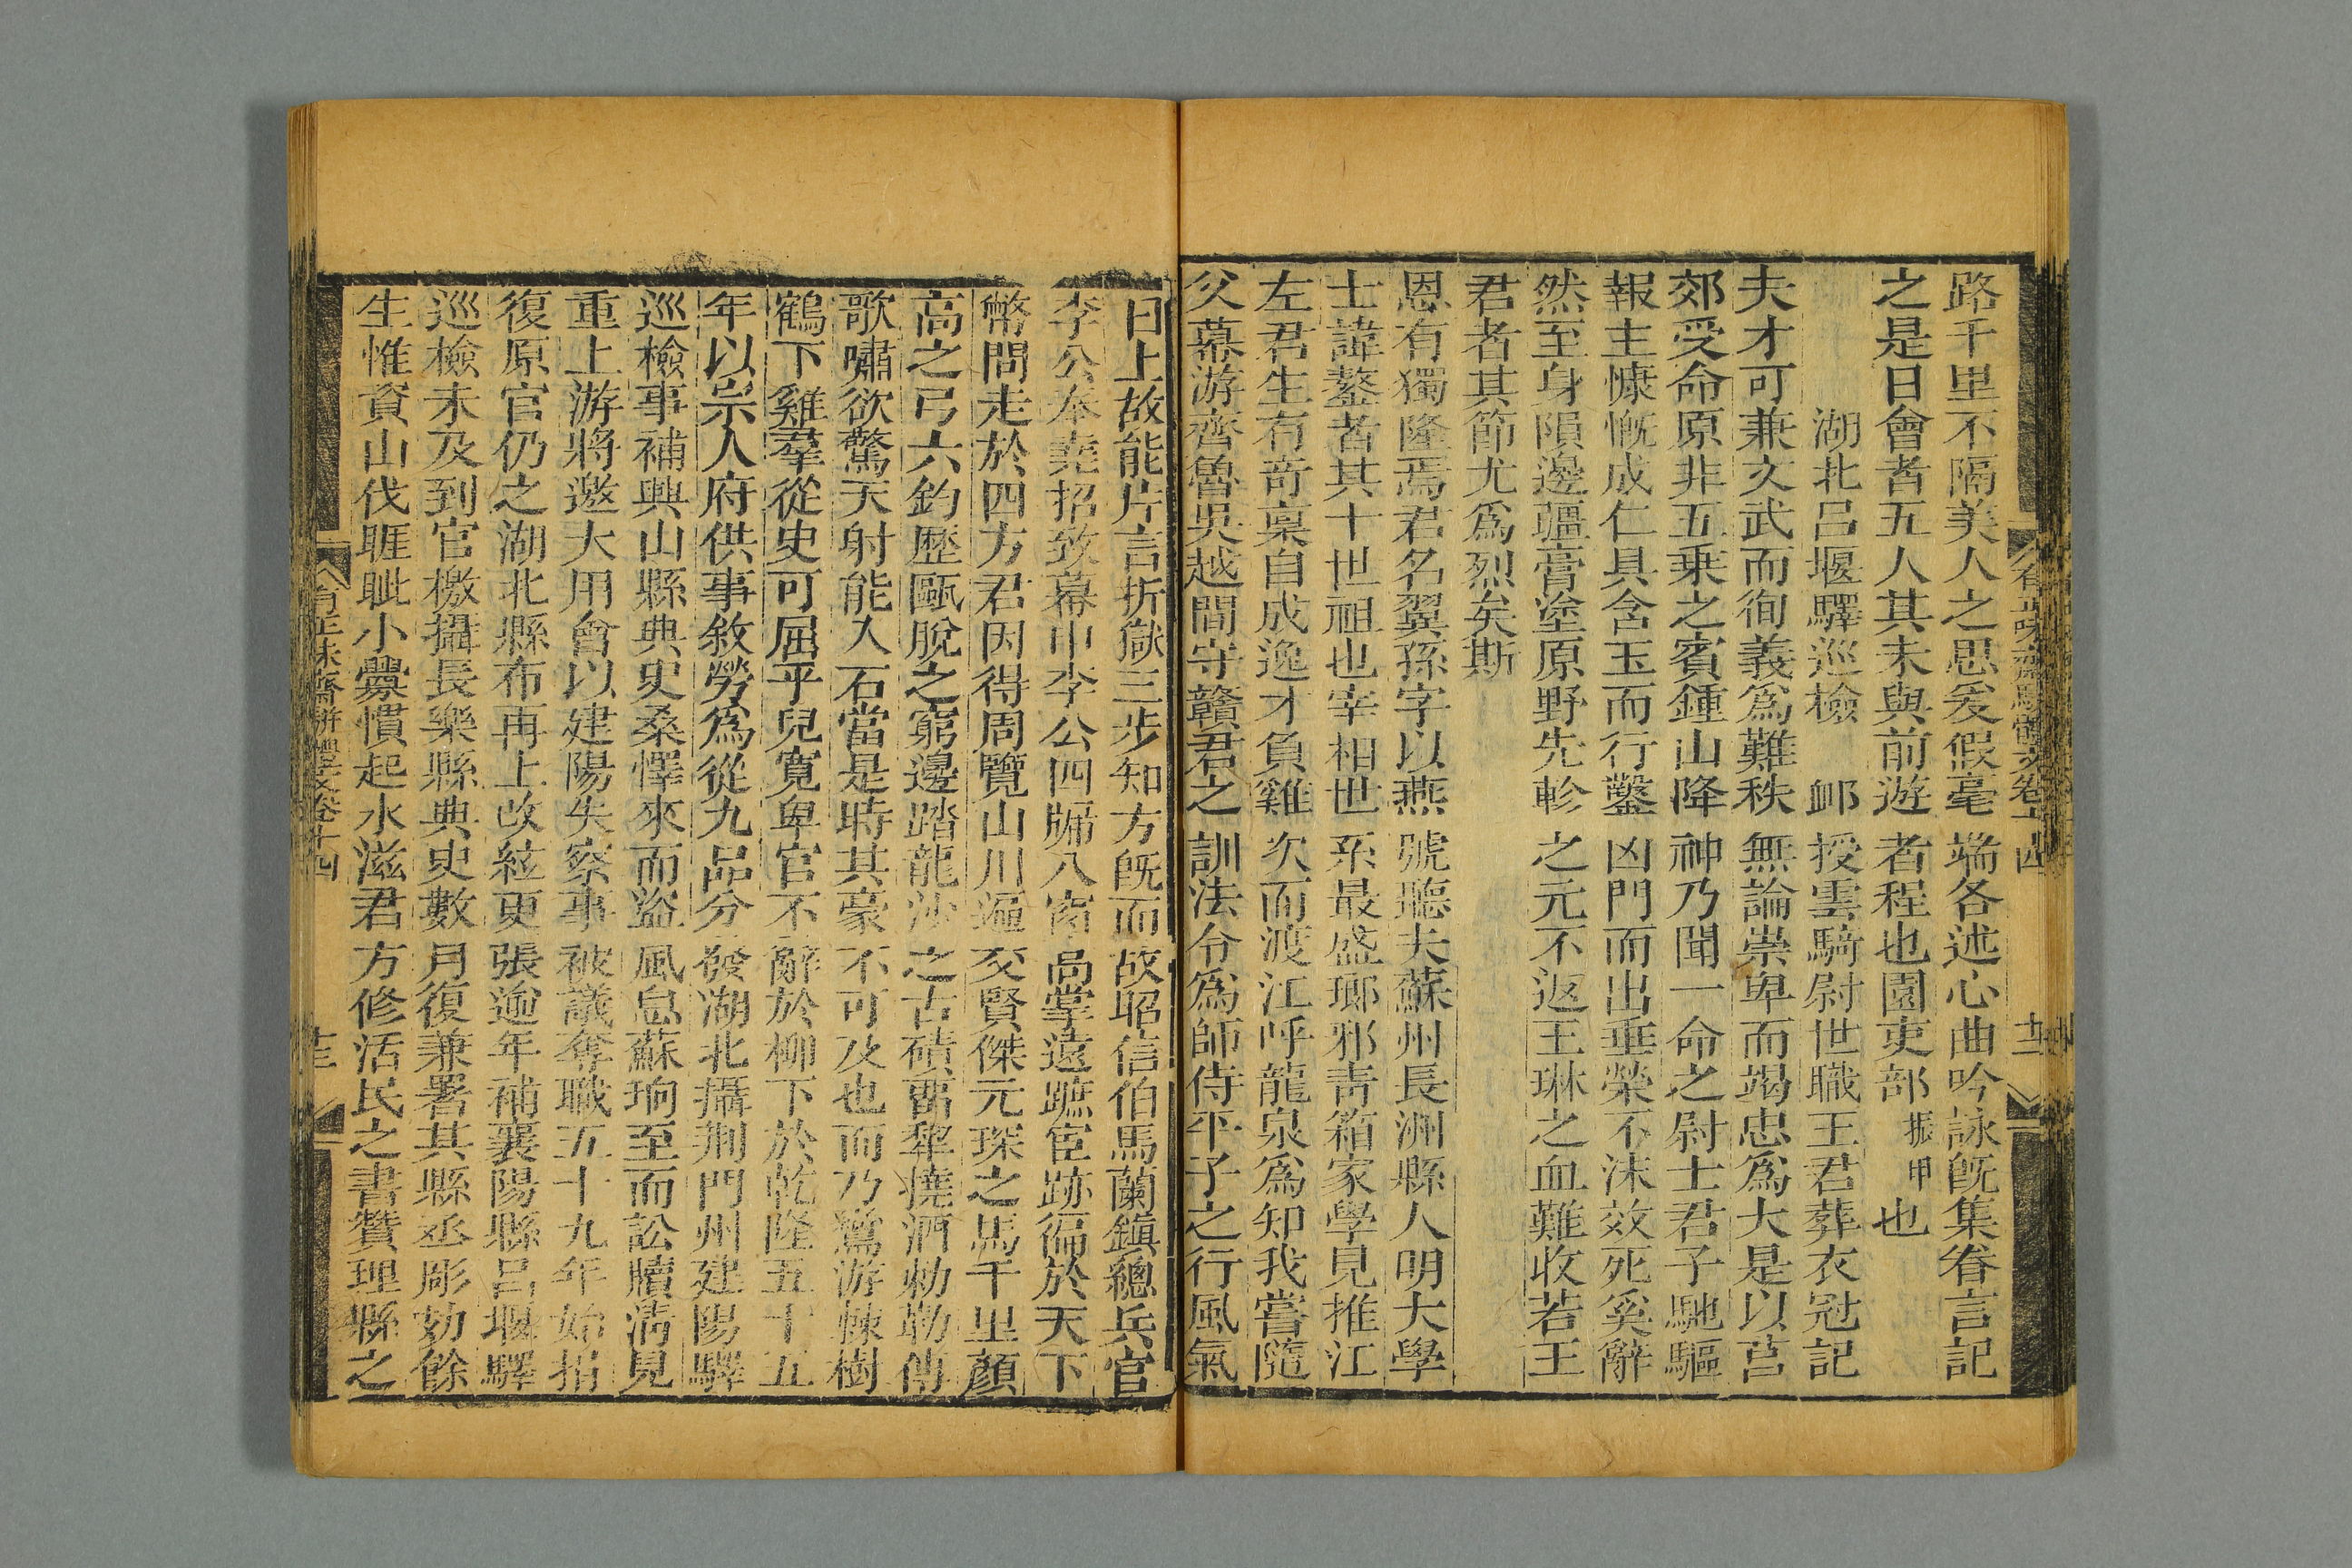 路千里不隔美人之思爰假毫端各述心曲吟詠旣集眷言記
之是日會者五人其未與前遊者程也園吏部振甲也
湖北呂堰驛巡檢 卹授雲騎尉世職王君葬衣冠記
夫才可兼文武而徇義爲難秩無論崇卑而竭忠爲大是以莒
郊受命原非五乘之賓鍾山降神乃聞一命之尉士君子馳驅
報主慷慨成仁具含玉而行鑿凶門而出垂榮不沫效死奚辭
然至身隕邊疆膏塗原野先軫之元不返王琳之血難收若王
君者其節尤爲烈矣斯
恩有獨隆焉君名翼孫字以燕號聽夫蘇州長洲縣人明大學
士諱鏊者其十世祖也宰相世系最盛瑯邪靑箱家學見推江
左君生有奇稟自成逸才負雞次而渡江呼龍泉爲知我嘗隨
父幕游齊魯吳越間守贛君之訓法令爲師侍平子之行風氣
日上故能片言折獄三步知方旣而故昭信伯馬蘭鎮總兵官
李公奉堯招致幕中李公四牖八窗咼掌遠蹠宦跡徧於天下
幣問走於四方君因得周覽山川遍交賢傑元琛之馬千里顏
高之弓六鈞歷甌脫之窮邊踏龍沙之古磧醤犂撓酒勅勒傳
歌嘯欲驚天射能入石當是時其豪不可及也而乃鶯游棘樹
鶴下雞羣從史可屈乎兒寬卑官不辭於柳下於乾隆五十五
年以宗人府供事敘勞爲從九品分發湖北攝荆門州建陽驛
巡檢事補興山縣典史桑懌來而盜風息蘇珦至而訟牘淸見
重上游將邀大用會以建陽失察事被議奪職五十九年始捐
復原官仍之湖北縣布再上改絃更張逾年補襄陽縣呂堰驛
巡檢未及到官檄攝長樂縣典史數月復兼署其縣丞彫劾餘
生惟資山伐睚眦小釁慣起水滋君方修活民之書贊理縣之
有正味齋駢體文卷十四